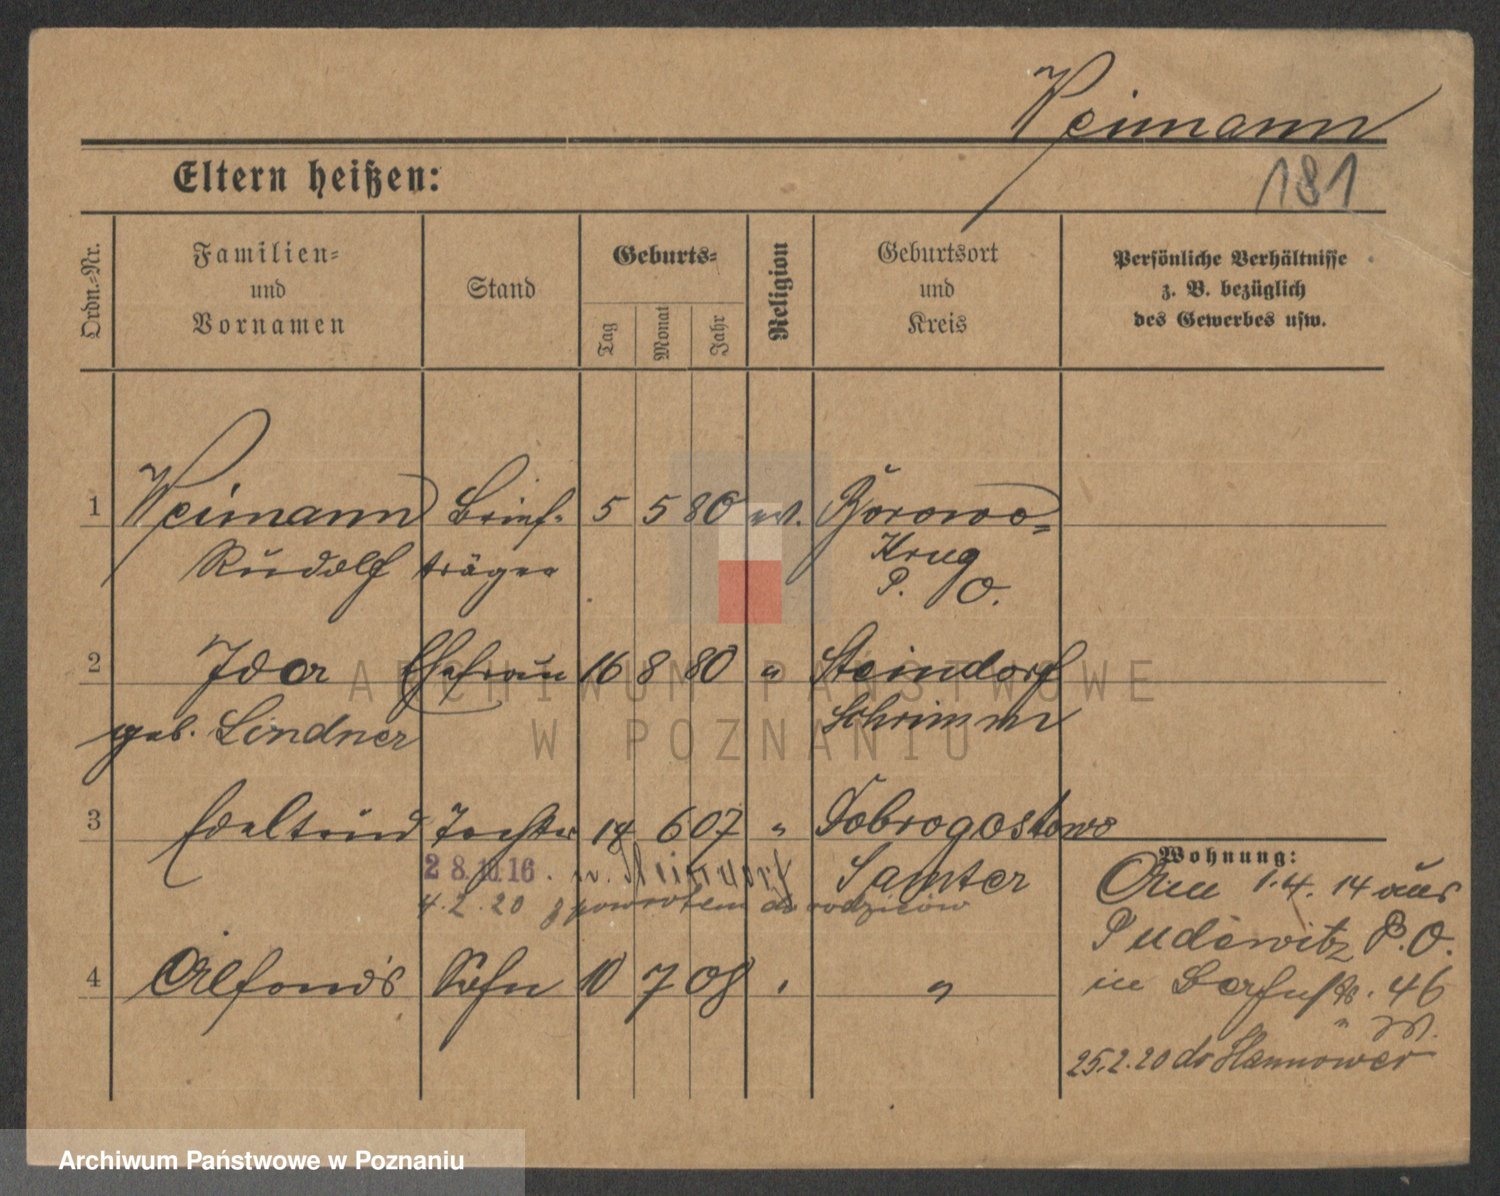 Weimann
181
Eltern heißen:
Ordn.-Nr.
Familien- und Vornamen
Stand
Geburts-
Tag
Monat
Jahr
Religion
Geburtsort und Kreis
Persönliche Verhältnisse z. B. bezüglich des Gewerbes usw.
1 Weimann Brief- 5 5 80 ev. Borowo-
Rudolf träger Krug
P. O.
2 Ida Ehefrau 16 8 80 " Steindorf
geb. Lindner Schrimm
3 Edeltrud Tochter 14 6 07 " Dobrogostowo
28.10.16. n. Steindorf Samter
4.2.20 z powrotem do rodziców
4 Alfons Sohn 10 7 08 " "
Wohnung:
1.4.14 aus
Pudewitz P. O.
in 46
25.2.20 do Hannower
ARCHIWUM PAŃSTWOWE
W POZNANIU
Archiwum Państwowe w Poznaniu